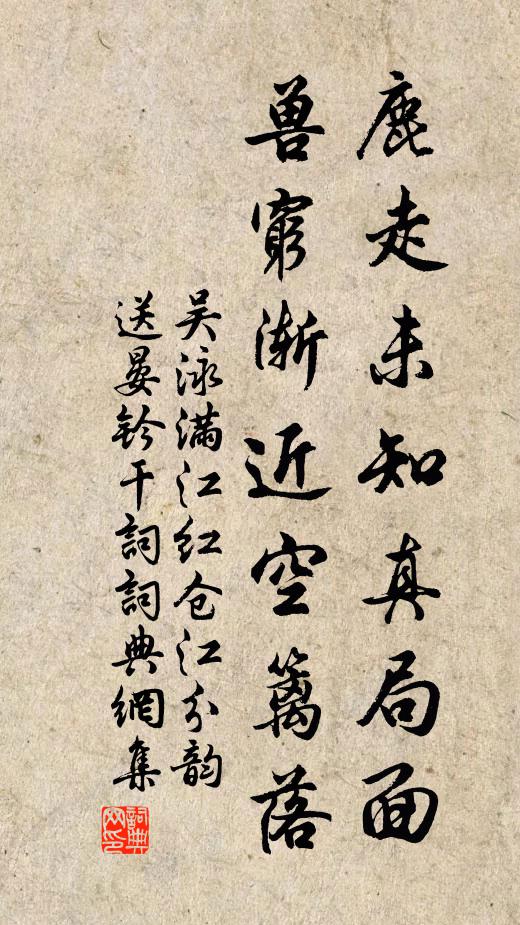 鹿走未知真局面
兽窮渐近空篱落
吴泳满江红仓江分韵
送晏钤干詞詞典網集
詞典网印